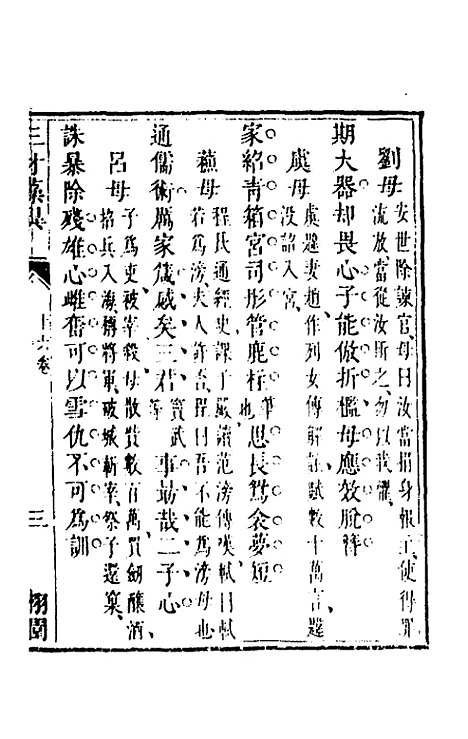 劉母
安世除諫官母曰汝當捐身報主使得罪
流放當從汝所之勿以我懼
期大器却畏心子能倣折檻母應效脫簪
虞母
虞韙妻趙作列女傳解註賦數十萬言韙
沒詔入宮
家紹青箱宮司彤管鹿柱筆也思長鴛衾夢短
蘇母
程氏通經史課子嚴讀范滂傳嘆軾曰軾
若為滂夫人許否程曰吾不能為滂母也
通儒術厲家箴感矣三君竇武等事勗哉二子心
呂母
子為吏被宰殺母散貲數百萬買劍釀酒
招兵入海稱將軍破城斬宰祭子還冢
誅暴除殘雄心雌奮可以雪仇不可為訓
三才藻異
卷
三
栩園